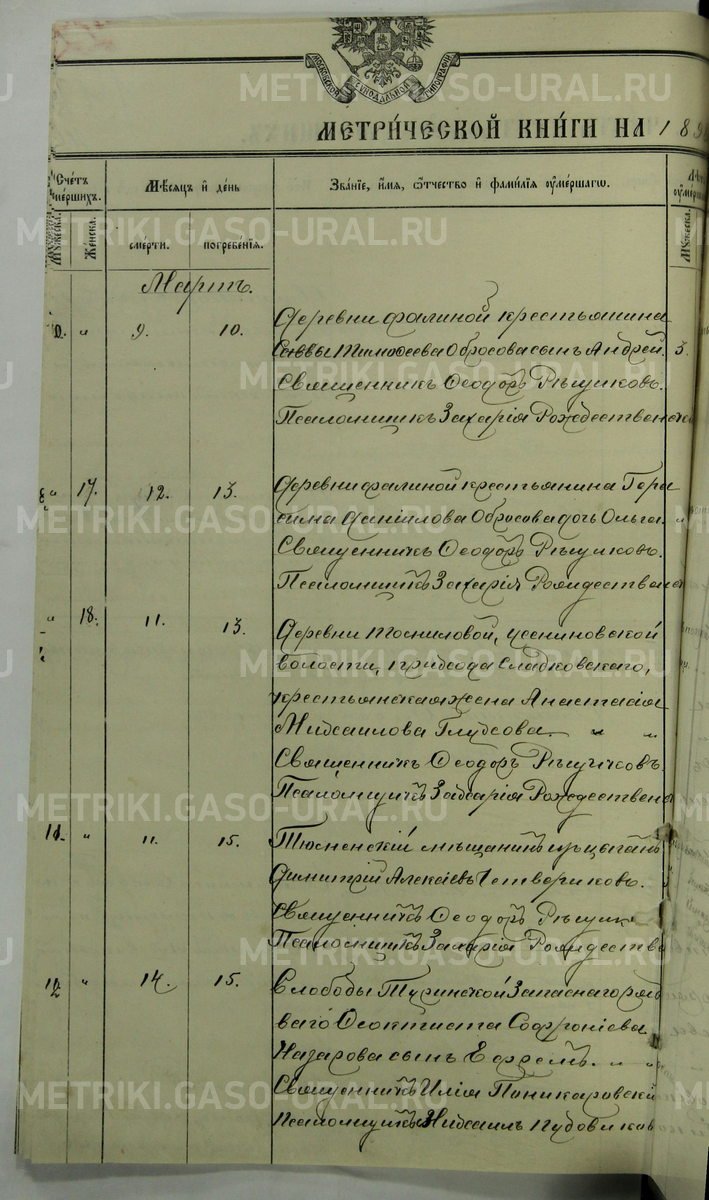 МОСКОВСКОЙ СѴНОДАЛЬНОЙ ТИПОГРАФІИ
МЕТРИ́ЧЕСКОЙ КНИ́ГИ НА 189
Счетъ умершихъ. Мѣсяцъ и день Званіе, имя, отчество и фамилія умершагѡ.
Мужеска. Женска. смерти. погребенія. Мужеска.
Мартъ.
9. 10. Деревни Фалиной крестьянина
Саввы Тимоѳеева Обросова сынъ Андрей. 3.
Священникъ Ѳеодоръ Рѣщиковъ.
Псаломщикъ Захарія Рождественск
17. 12. 13. Деревни Фалиной крестьянина Гера
сима Даніилова Обросова дочь Ольга.
Священникъ Ѳеодоръ Рѣщиковъ.
Псаломщикъ Захарія Рождествен
18. 11. 13. Деревни Томиловой, Усениновской
волости, прихода Сладковскаго,
крестьянская жена Анастасія
Михаилова Глухова.
Священникъ Ѳеодоръ Рѣщиковъ.
Псаломщикъ Захарія Рождествен
11. 11. 15. Тюменскій мѣщанинъ изъ цыганъ
Димитрій Алексѣевъ Четвериковъ.
Священникъ Ѳеодоръ Рѣщик
Псаломщикъ Захарія Рождеств
12 14. 15. Слободы Туринской Запаснаго рядо
ваго Ѳеоктиста Софроніева
Назарова сынъ Ефремъ.
Священникъ Илія Поникаровскій
Псаломщикъ Михаилъ Пудовиков
METRIKI.GASO-URAL.RU